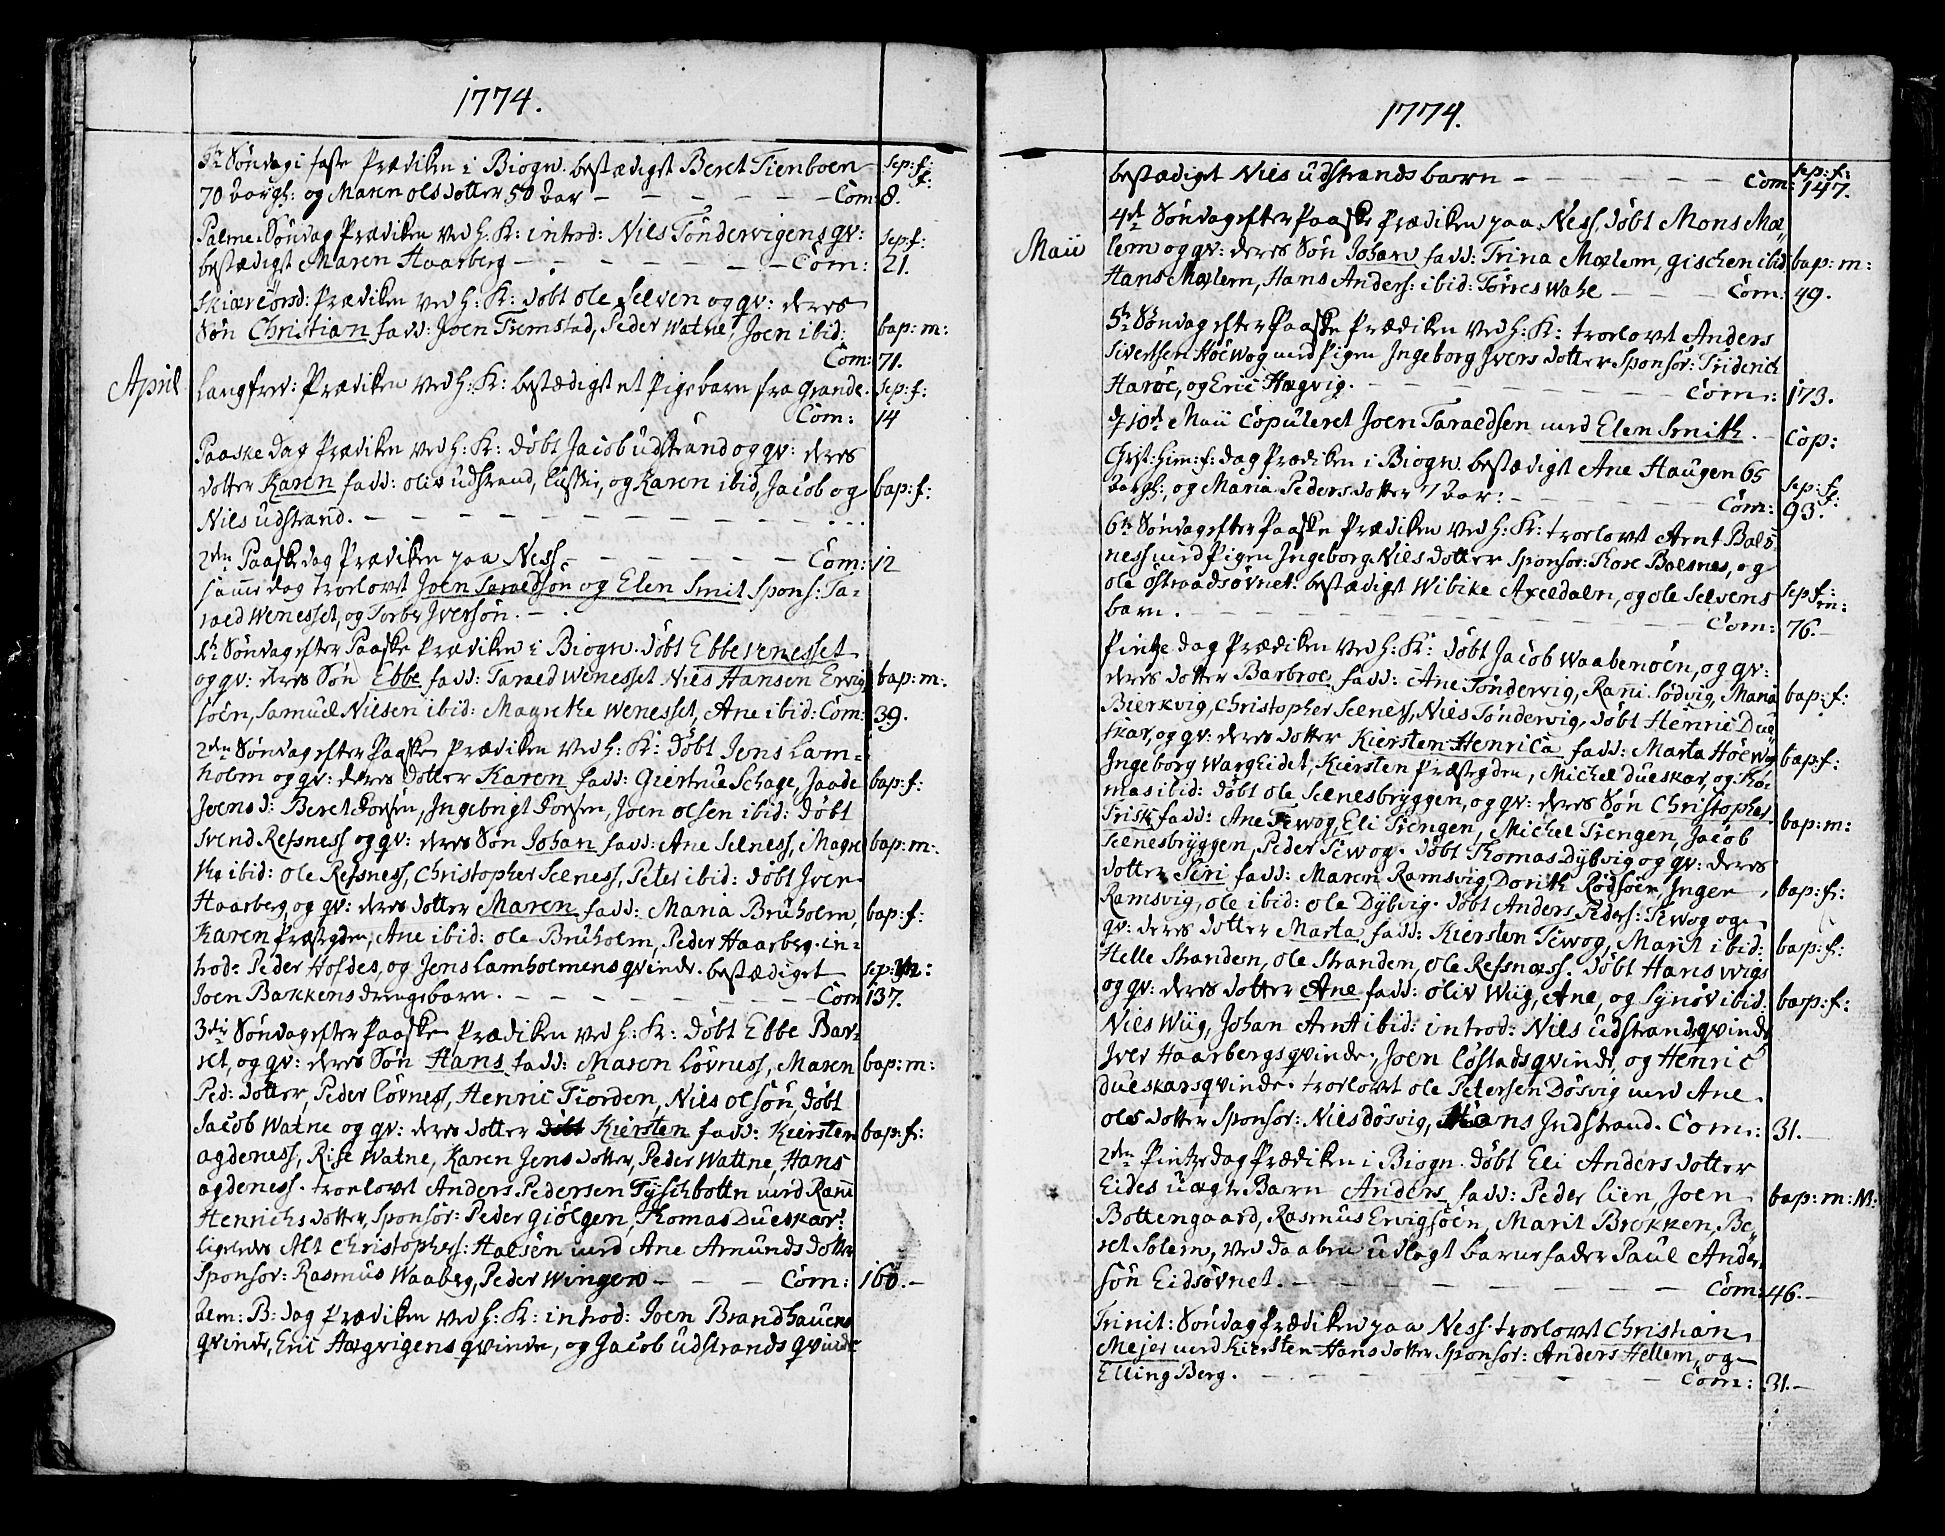 1774.
5te Søndag i faste Prædiken i Biogn. bestædiget Beret Tienboen sep: f:
70 aargl: og Maren olsdotter 50 aar – – – – – Com: 8. f:
Palme-Søndag Prædiken ved H: K: introd: Nils Tøndervigens qv: sep: f:
bestædigt Maren Haarberg – – – – – – Com: 21.
Skiærtorsd: Prædiken ved H: K: døbt ole Selven og qv: deres
Søn Christian fadd: Joen Fremstad, Peder Watne, Joen ibid: bap: m:
Com: 71.
April Langfred: Prædiken ved H: K: bestædiget et Pigebarn fra Grande. sep: f:
Com: 14
Paaske dag Prædiken ved H: K: døbt Jacob udstrand og qv: deres
dotter Karen fadd: oliv udstrand, og Karen ibid, Jacob og bap: f:
Nils udstrand. – – – – – – – – – –
2den Paaskedag Prædiken paa Ness – – – – – – Com: 12
samme dag troelovt Joen Taraldsøn og Elen Smit Spons: Ta-
raed Wenesset, og Torber Iversøn. –
1te Søndag efter Paaske Prædiken i Biogn. døbt Ebbe venesset
og qv: deres Søn Ebbe fadd: Taraed Wenesset Nils Hansen Ervig- bap: m:
søen, Samuel Nilsen ibid: Magrethe Wenesset, Ane ibid: Com: 39.
2den Søndag efter Paaske Prædiken ved H: K: døbt Jens Lam-
holm og qv: deres dotter Karen fadd: Giertrue Schage, Jaade bap: f:
Joensd: Beret Forsen, Ingebrigt Forsen, Joen olsen ibid: døbt
Svend Refsness og qv: deres Søn Johan fadd: Ane Selness, Magre- bap: m:
the ibid: ole Refsness, Christopher Selness, Peter ibid: døbt Iver
Haarberg, og qv: deres dotter Maren fadd: Maria Bruholm, bap: f:
Karen Præstegden, Ane ibid: ole Bruholm, Peder Haarberg. in-
trod: Peder Hofdes, og Jens Lamholmens qvinde. bestædiget sep: m:
Joen Bakkens drengebarn. – – – – – – – Com 137.
3die Søndag efter Paaske Prædiken ved H: K: døbt Ebbe Bar-
set, og qv: deres Søn Hans fadd: Maren Løvness, Maren bap: m:
Ped: dotter, Peder Løvness, Henric Fiorden, Nils olsøn, døbt
Jacob Watne og qv: deres dotter Kiersten fadd: Kiersten bap: f:
agdeness, Rise Watne, Karen Jens dotter, Peder Wattne, Hans
agdeness. troelovt Anders Pedersen Tyschbottn med Rani
Henrichs dotter, Sponsor: Peder Giølgen, Thomas Dueskar:
ligeledes Alt Christophers: Halsøn med Ane Amunds dotter
Sponsor: Rasmus Waaberg, Peder Winger – – – Com: 160. –
alm: B: dag Prædiken ved H: K: introd: Joen Brandhauens
qvinde, Eric Hægvigens qvinde, og Jacob udstrands qvinde
1774.
bestædiget Nils udstrands barn – – – – – Com: 147. sep: f:
4de Søndag efter Paaske Prædiken paa Ness, døbt Mons Mæ-
Maii lem og qv: deres Søn Johan fadd: Trina Mælem, gischen ibid bap: m:
Hans Mælem, Hans Anders: ibid: Torres Wahl – – – Com: 49.
5te Søndag efter Paaske Prædiken ved H: K: troelovt Anders
Sivertsen Høewog med Pigen Ingeborg Ivers dotter Sponsor: Friderich
Harøe, og Eric Hægvig. – – – – – – – Com: 173.
d. 10de Maii Copuleret Joen Taraldsen med Elen Smith. – Cop:
Christ: him: f: dag Prædiken i Biogn. bestædigt Ane Haugen 65 sep: f:
aargl:, og Maria Peders dotter 7 aar: – – – – – Com: 93. f:
6te Søndag efter Paaske Prædiken ved H: K: troelovt Arnt Bals-
ness med Pigen Ingeborg Nils dotter Sponsor: Rose Balsnes, og
ole østraadsøvnet. bestædigt Wibike Axeldaln, og ole Selvens sep f: m:
barn. – – – – – – – – Com: 76. –
Pintze dag Prædiken ved H: K: døbt Jacob Waabenøen, og qv:
deres dotter Barbroe fadd: Ane Tøndervig, Rani Sødvig, Maria bap: f:
Bierkvig, Christopher Selness, Nils Tøndervig. døbt Henric Due-
skar, og qv: deres dotter Kiersten Henrica fadd: Marta Høewog bap: f:
Ingeborg Wargheidet, Kiersten Præstegden, Michel Dueskar, og Tho-
mas ibid: døbt ole Selnesbryggen, og qv: deres Søn Christopher
Frisk fadd: Ane Tewog, Eli Trengen, Michel Trengen, Jacob bap: m:
Selnesbryggen, Peder Tewog. døbt Thomas Dybvig og qv: deres
dotter Siri fadd: Maren Ramsvig, Dorith Rødsøen, Inger bap: f:
Ramsvig, ole ibid: ole Dybvig. døbt Anders Peders: Tewog og
qv: deres dotter Marta fadd: Kiersten Tewog, Marit ibid: bap: f:
Helle Stranden, ole Stranden, ole Refsnæss. døbt Hans wigs
og qv: deres dotter Ane fadd: oliv Wiig, Ane, og Synøv ibid. bap: f:
Nils Wiig, Johan Arnt ibid: introd: Nils udstrands qvinde
Iver Haarbergs qvinde, Joen Løstads qvinde, og Henric
Dueskars qvinde. troelovt ole Petersen Døsvig med Ane
ols dotter Sponsor: Nils døsvig, Hans Indstrand. Com: 31. –
2den Pintzedag Prædiken i Biogn. døbt Eli Anders dotter
Eides uægte Barn Anders fadd: Peder Lien, Joen bap: m: N:
Bottengaard, Rasmus Ervigsøen, Marit Brekken, Be-
ret Solem, ved daaben udlagt barnefader Paul Ander-
søn Eidsøvnet. – – – – – – – Com: 46. –
Trinit: Søndag Prædiken paa Ness. troelovt Christian
Mejer med Kiersten Hans dotter Sponsor: Anders Hellem, og
Elling Berg. – – – – – – – Com: 31. –